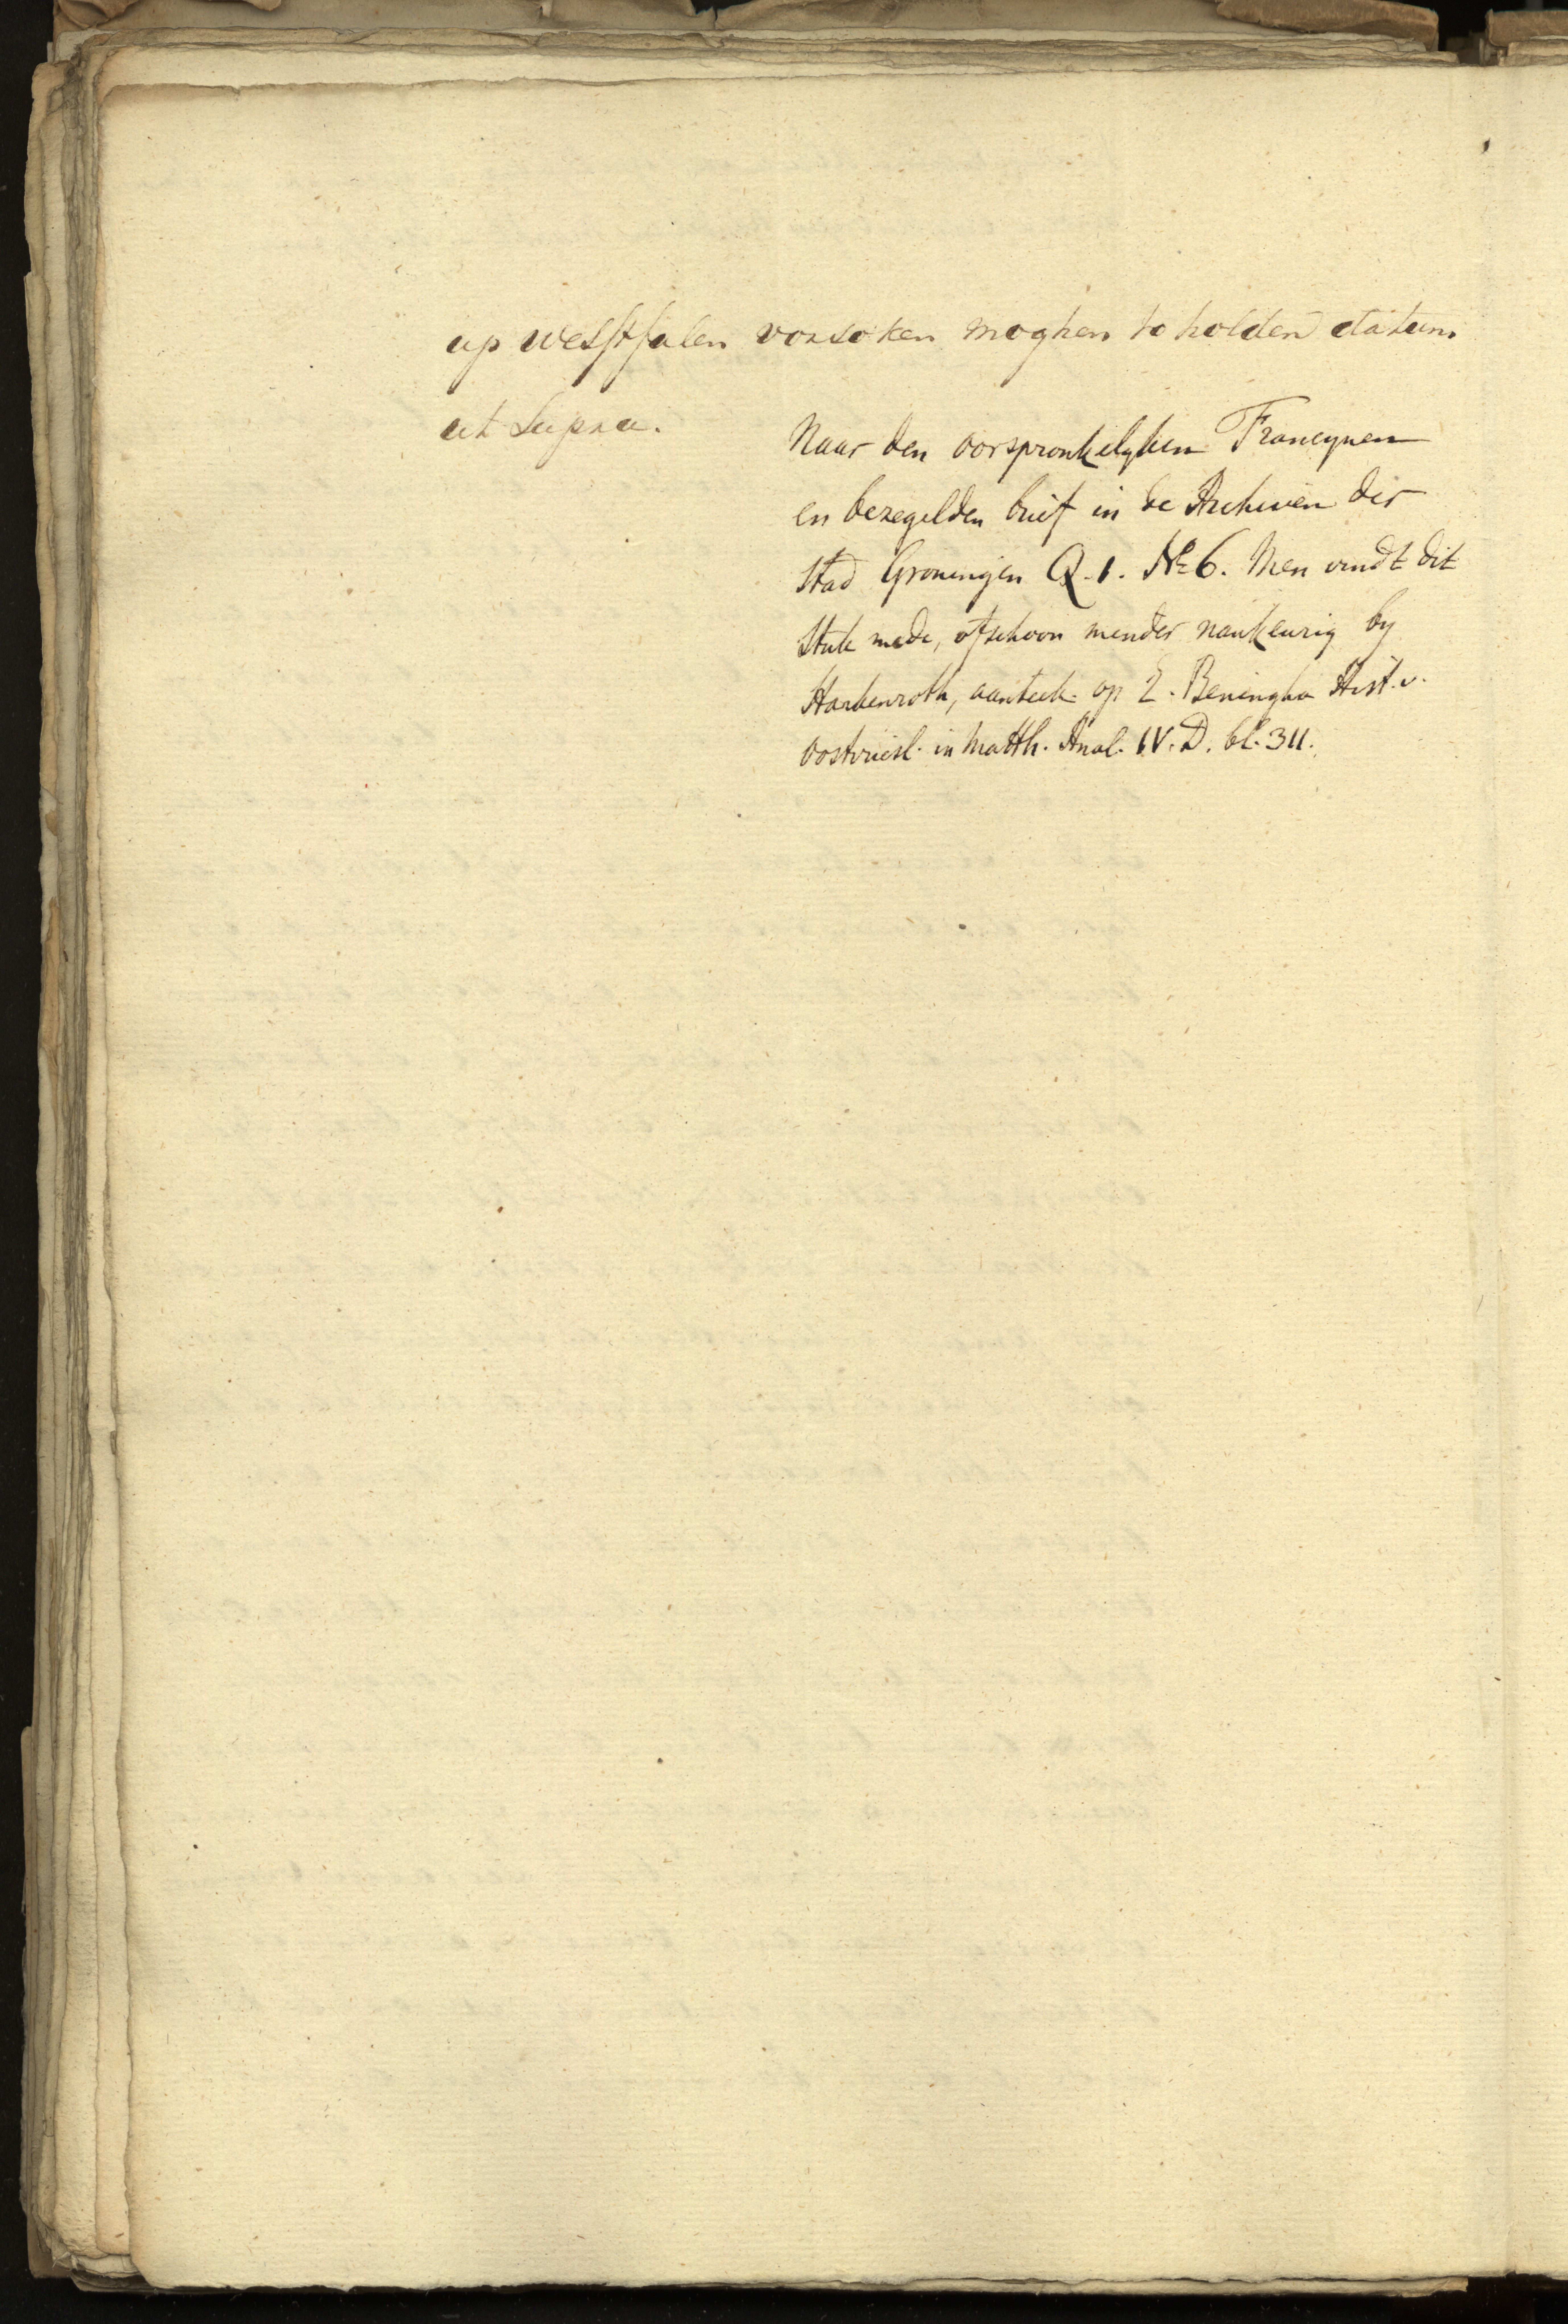 up westfalen vorsoken moghen to holden datum
ut Supra.
Naar den oorspronkelyken Francynen
en bezegelden brief in de Archiven der
Stad Groningen Q. 1. No 6. Men vindt dit
Stuk mede, ofschoon minder naukeurig by
Harkenroth, aanteek. op E. Beningha Hist. v.
Oostvriesl. in Matth. Anal. IV. D. bl. 311.